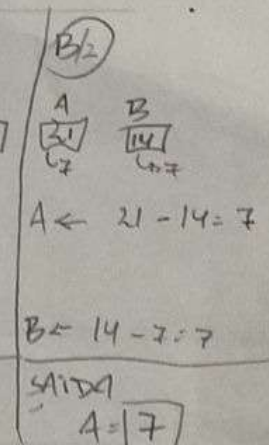 B/2
A B
21 14
↳7 ↳7
A ← 21 - 14 = 7
B ← 14 - 7 = 7
SAÍDA
A = 7